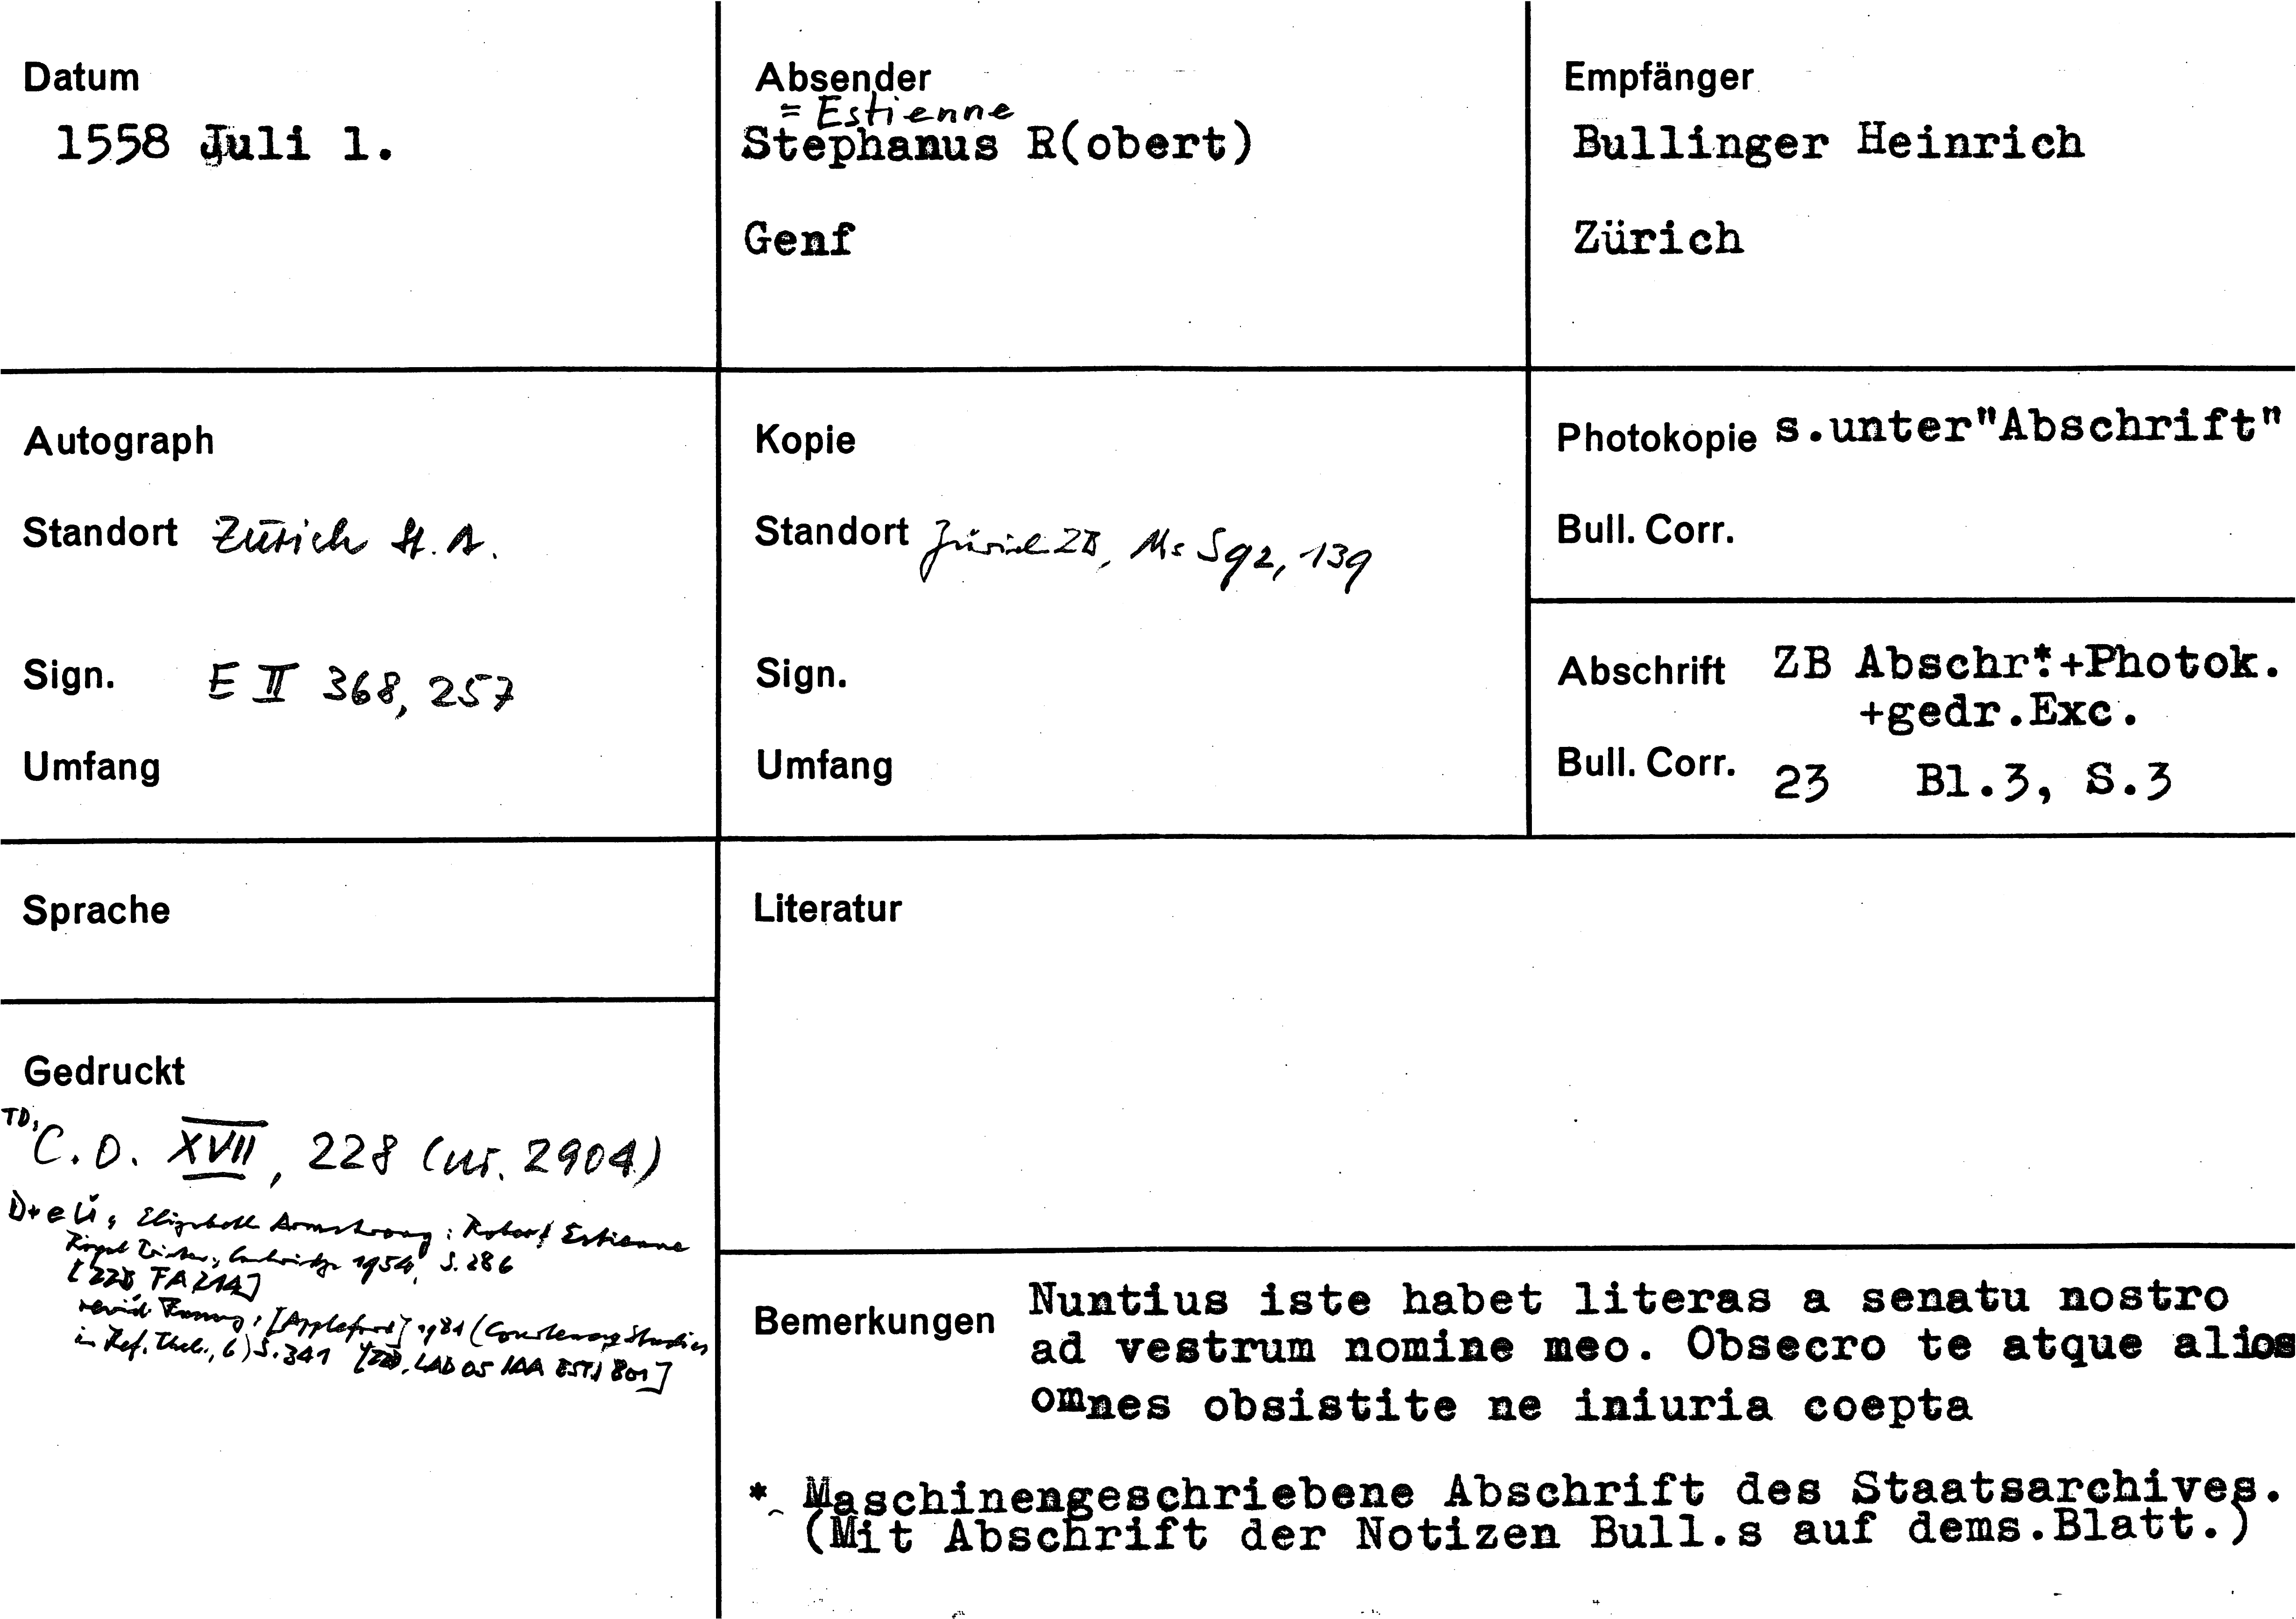 Datum
1558 Juli 1.
Absender
= Estienne
Stephanus R(obert)
Genf
Empfänger
Bullinger Heinrich
Zürich
Autograph
Standort Zürich St. A.
Sign. E II 368, 257
Umfang
Kopie
Standort Zürich ZB, Ms S 92, 139
Sign.
Umfang
Photokopie s.unter"Abschrift"
Bull. Corr.
Abschrift ZB Abschr*.+Photok.
+gedr.Exc.
Bull. Corr. 23 Bl.3, S.3
Sprache
Literatur
Gedruckt
TD,
C. O. XVII, 228 (nr. 2904)
D+eÜ, Elizabeth Armstrong: Robert Estienne
Royal Printer, Cambridge 1954, S. 286
[ZB, FA 214]
[Appleford] 1981 (Courtenay Studies
in Ref. Theol., 6) S. 341
Bemerkungen Nuntius iste habet literas a senatu nostro
ad vestrum nomine meo. Obsecro te atque alios
omnes obsistite ne iniuria coepta
* Maschinengeschriebene Abschrift des Staatsarchives.
(Mit Abschrift der Notizen Bull.s auf dems.Blatt.)